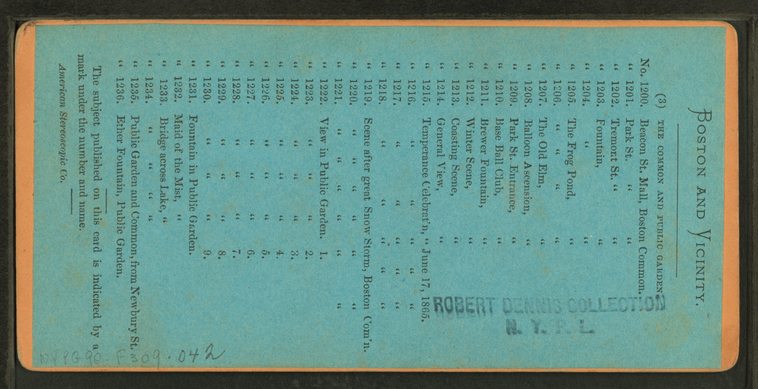 BOSTON AND VICINITY.
(3) THE COMMON AND PUBLIC GARDEN
No. 1200. Beacon St. Mall, Boston Common.
" 1201. Park St. " "
" 1202. Tremont St. " "
" 1203. Fountain, "
" 1204. " "
" 1205. The Frog Pond, "
" 1206. " " " "
" 1207. The Old Elm, "
" 1208. Balloon Ascension, "
" 1209. Park St. Entrance, "
" 1210. Base Ball Club, "
" 1211. Brewer Fountain, "
" 1212. Winter Scene, "
" 1213. Coasting Scene, "
" 1214. General View, "
" 1215. Temperance Celebrat'n, " June 17, 1865.
" 1216. " " " "
" 1217. " " " "
" 1218. " " " "
" 1219. Scene after great Snow Storm, Boston Com'n.
" 1220. " " " " "
" 1221. " " " " "
" 1222. View in Public Garden. 1.
" 1223. " " " 2.
" 1224. " " " 3.
" 1225. " " " 4.
" 1226. " " " 5.
" 1227. " " " 6.
" 1228. " " " 7.
" 1229. " " " 8.
" 1230. " " " 9.
" 1231. Fountain in Public Garden.
" 1232. Maid of the Mist, "
" 1233. Bridge across Lake, "
" 1234. " " " "
" 1235. Public Garden and Common, from Newbury St.
" 1236. Ether Fountain, Public Garden.
The subject published on this card is indicated by a
mark under the number and name.
American Stereoscopic Co.
ROBERT DENNIS COLLECTION
N. Y. P. L.
NYPG90-F309.042